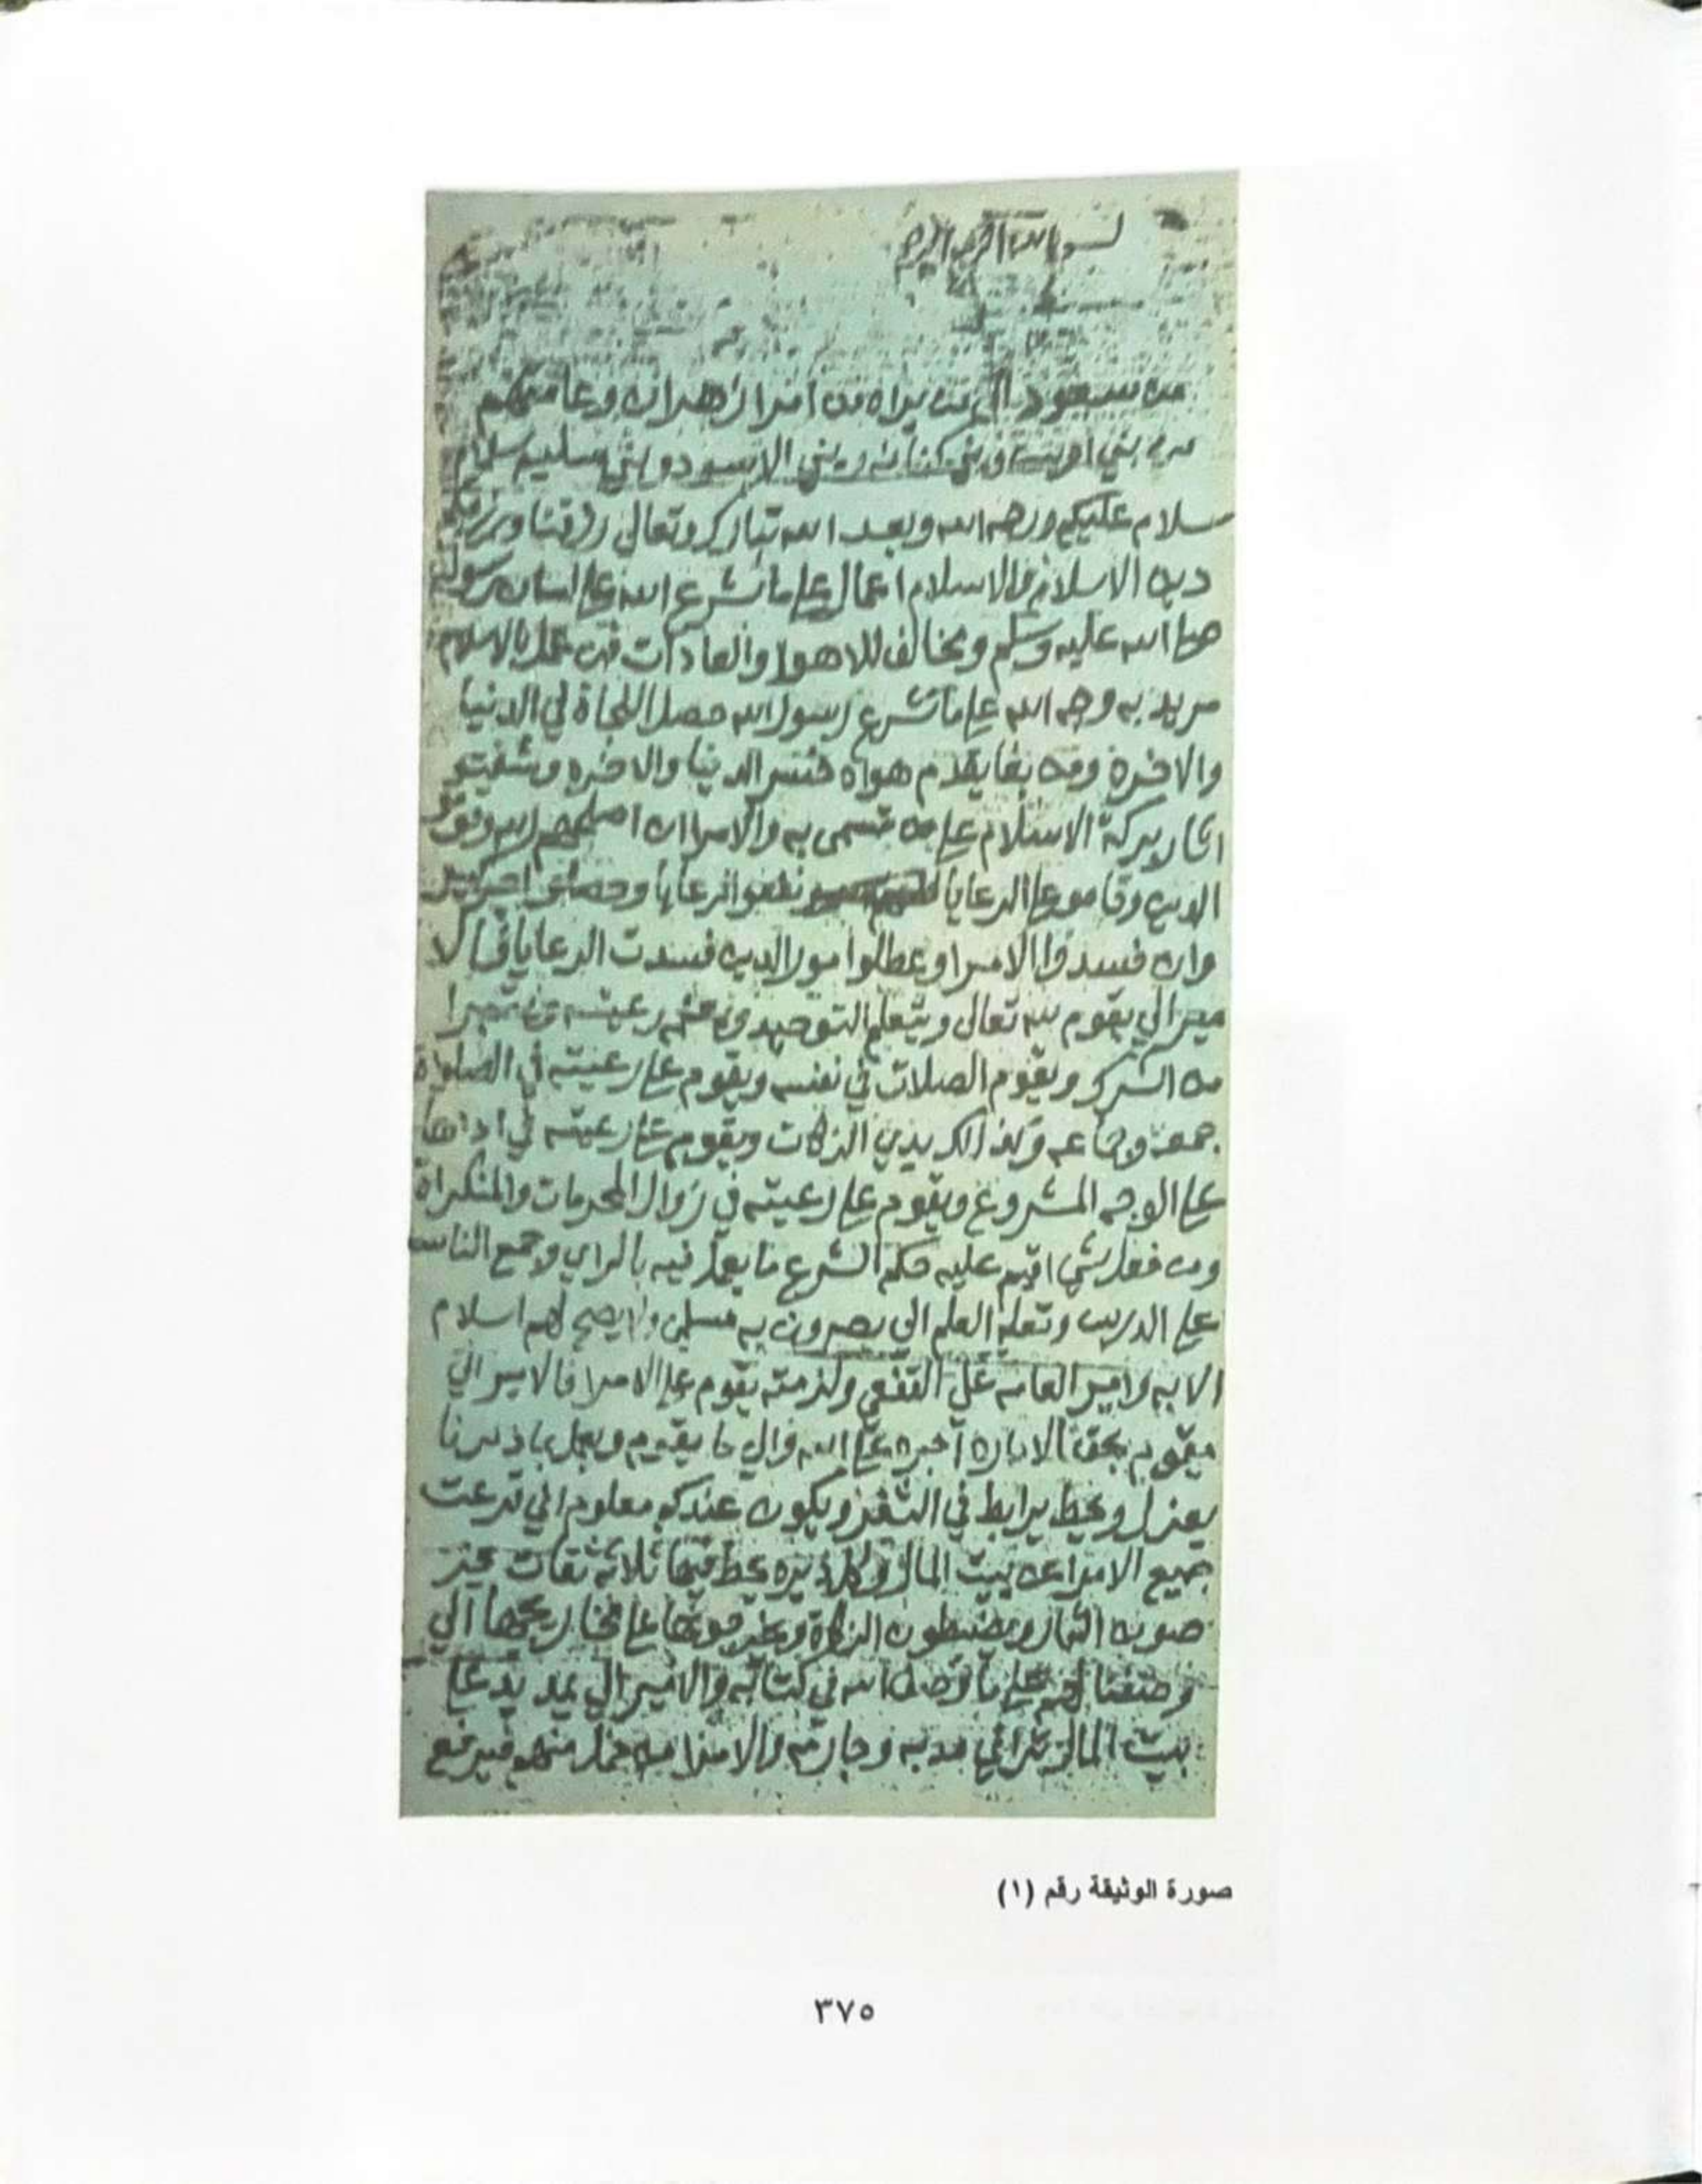 بسم الله الرحمن الرحيم
من سعود الى من يراه من امرا زهران وعامتهم
من بني اويس وبني كنانه وبني الاسود وبني سليم سلام
سلام عليكم ورحمه الله وبعد الله تبارك وتعالى رزقنا
دين الاسلام والاسلام اعمال على ما شرع الله على لسان رسوله
صلى الله عليه وسلم ومخالف للاهوا والعادات فمن عمل بالاسلام
مريد به وجه الله على ما شرع رسول الله حصل النجاة في الدنيا
والاخرة ومن بغا يقدم هواه خسر الدنيا والاخره وشفتو
اثار بركة الاسلام على من تسمى به والامرا ان اصلحهم الله
الدين وقامو على الرعايا نفعو الرعايا وحصلو
وان فسدوا الامرا وعطلوا امور الدين فسدت الرعايا فالا
مير الي يقوم لله تعالى ويتعلم التوحيد رعيته
من الشرك ويقوم الصلات في نفسه ويقوم على رعيته في الصلوة
جمعة وجماعه وكذالك يدي الزكات ويقوم على رعيته في اداها
على الوجه المشروع ويقوم على رعيته في زوال المحرمات والمنكراة
ومن فعل شي اقيم عليه حكم الشرع ما يعمل فيه بالراي وجمع الناس
على الدريس وتعلم العلم الي يصيرون به مسلمين ولا يصح لهم اسلام
الا به وامير العامه على ولزمته يقوم على الامرا فالامير الي
يقوم بحق الاماره اجره على الله والي ما يقوم ويعمل بما ذكرنا
يعزل ويحط يرابط في الثغر ويكون عندكم معلوم اني نزعت
جميع الامرا عن بيت المال وكل ديره يحط فيها ثلاثة ثقات
صون الثمار ويضبطون الزكاة على مخاريجها الي
وصفنا لهم على ما فصل الله في كتابه والامير الي يمد يده على
بيت المال والامرا
صورة الوثيقة رقم (١)
٣٧٥